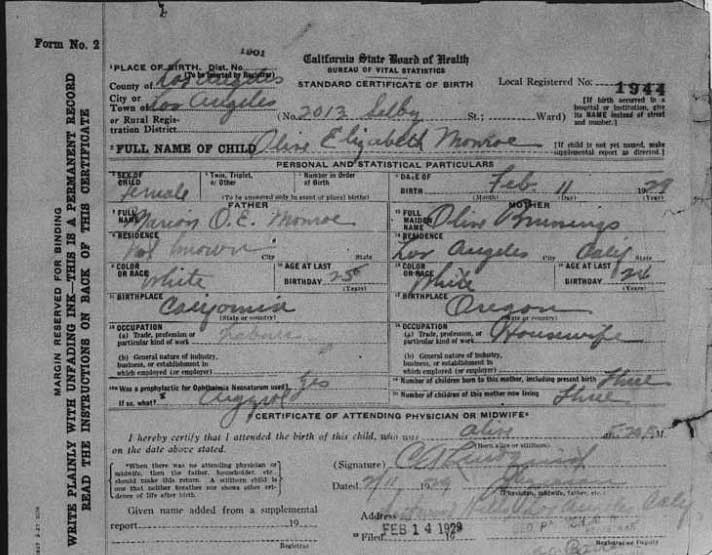 Form No. 2
1901
California State Board of Health
BUREAU OF VITAL STATISTICS
STANDARD CERTIFICATE OF BIRTH
Local Registered No. 1944
PLACE OF BIRTH. Dist. No.
(To be inserted by Registrar)
County of Los Angeles
City or Town of Los Angeles
or Rural Registration District
(No. 2013 Selby St.; Ward)
[If birth occurred in a hospital or institution, give its NAME instead of street and number.]
FULL NAME OF CHILD Olive Elizabeth Monroe
[If child is not yet named, make supplemental report as directed.]
PERSONAL AND STATISTICAL PARTICULARS
SEX OF CHILD female
Twin, Triplet, or Other
Number in Order of Birth
(To be answered only in event of plural births)
DATE OF BIRTH Feb 11 1929
(Month) (Day) (Year)
FATHER
FULL NAME Marion O.E. Monroe
RESIDENCE Not known
City State
COLOR OR RACE White
AGE AT LAST BIRTHDAY 25
(Years)
BIRTHPLACE California
(State or country)
OCCUPATION
(a) Trade, profession or particular kind of work Laborer
(b) General nature of industry, business, or establishment in which employed (or employer)
MOTHER
FULL MAIDEN NAME Olive Brunings
RESIDENCE Los Angeles Calif
City State
COLOR OR RACE White
AGE AT LAST BIRTHDAY
(Years)
BIRTHPLACE Oregon
(State or country)
OCCUPATION
(a) Trade, profession, or particular kind of work Housewife
(b) General nature of industry, business, or establishment in which employed (or employer)
Was a prophylactic for Ophthalmia Neonatorum used? Yes
If so, what? Argyrol
Number of children born to this mother, including present birth Three
Number of children of this mother now living Three
CERTIFICATE OF ATTENDING PHYSICIAN OR MIDWIFE*
I hereby certify that I attended the birth of this child, who was alive
(Born alive or stillborn)
on the date above stated.
*When there was no attending physician or midwife, then the father, householder, etc. should make this return. A stillborn child is one that neither breathes nor shows other evidence of life after birth.
(Signature)
(Physician, midwife, father, etc.)
Dated 2/11, 1929
Given name added from a supplemental report 19
Registrar
Address
Filed FEB 14 1929
Registrar or Deputy
MARGIN RESERVED FOR BINDING
WRITE PLAINLY WITH UNFADING INK—THIS IS A PERMANENT RECORD
READ THE INSTRUCTIONS ON BACK OF THIS CERTIFICATE